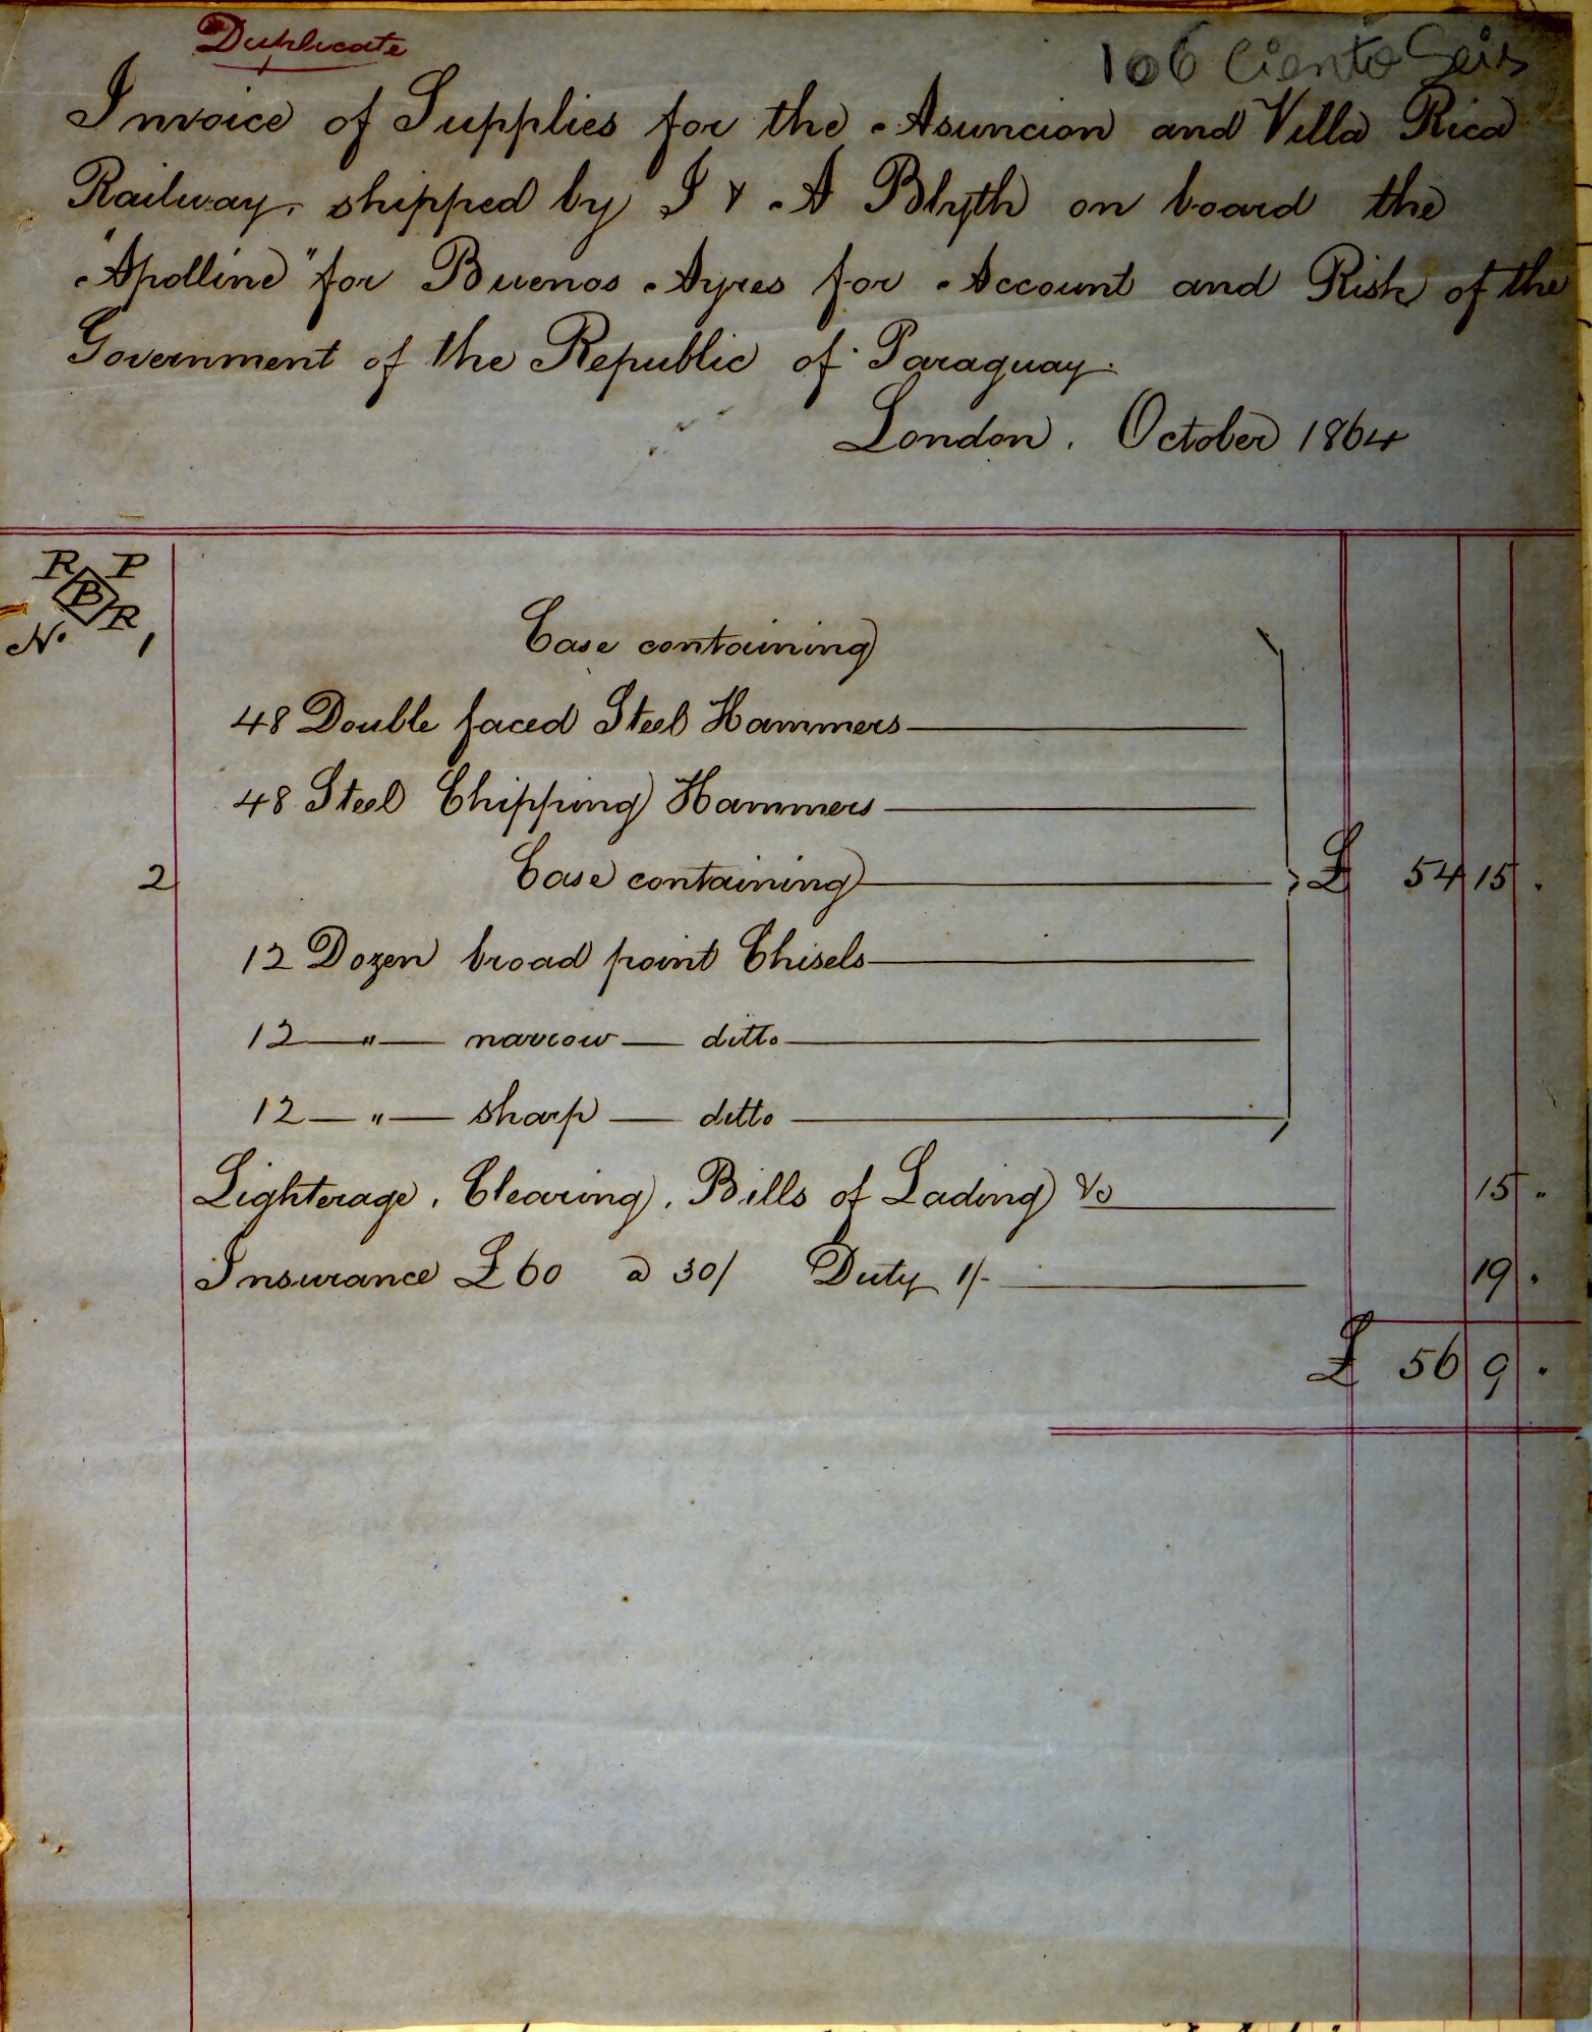 Duplicate
106 Ciento Seis
Invoice of Supplies for the Asuncion and Villa Rica
Railway, shipped by J & A Blyth on board the
"Apolline" for Buenos Ayres for Account and Risk of the
Government of the Republic of Paraguay.
London, October 1864
R P
B
R
No. 1
Case containing
48 Double faced Steel Hammers
48 Steel Chipping Hammers
2 Case containing £ 54 15 .
12 Dozen broad point Chisels
12 — " — narrow — ditto
12 — " — sharp — ditto
Lighterage, Clearing, Bills of Lading &c 15 "
Insurance £60 @ 30/ Duty 1/- 19 .
£ 56 9 .